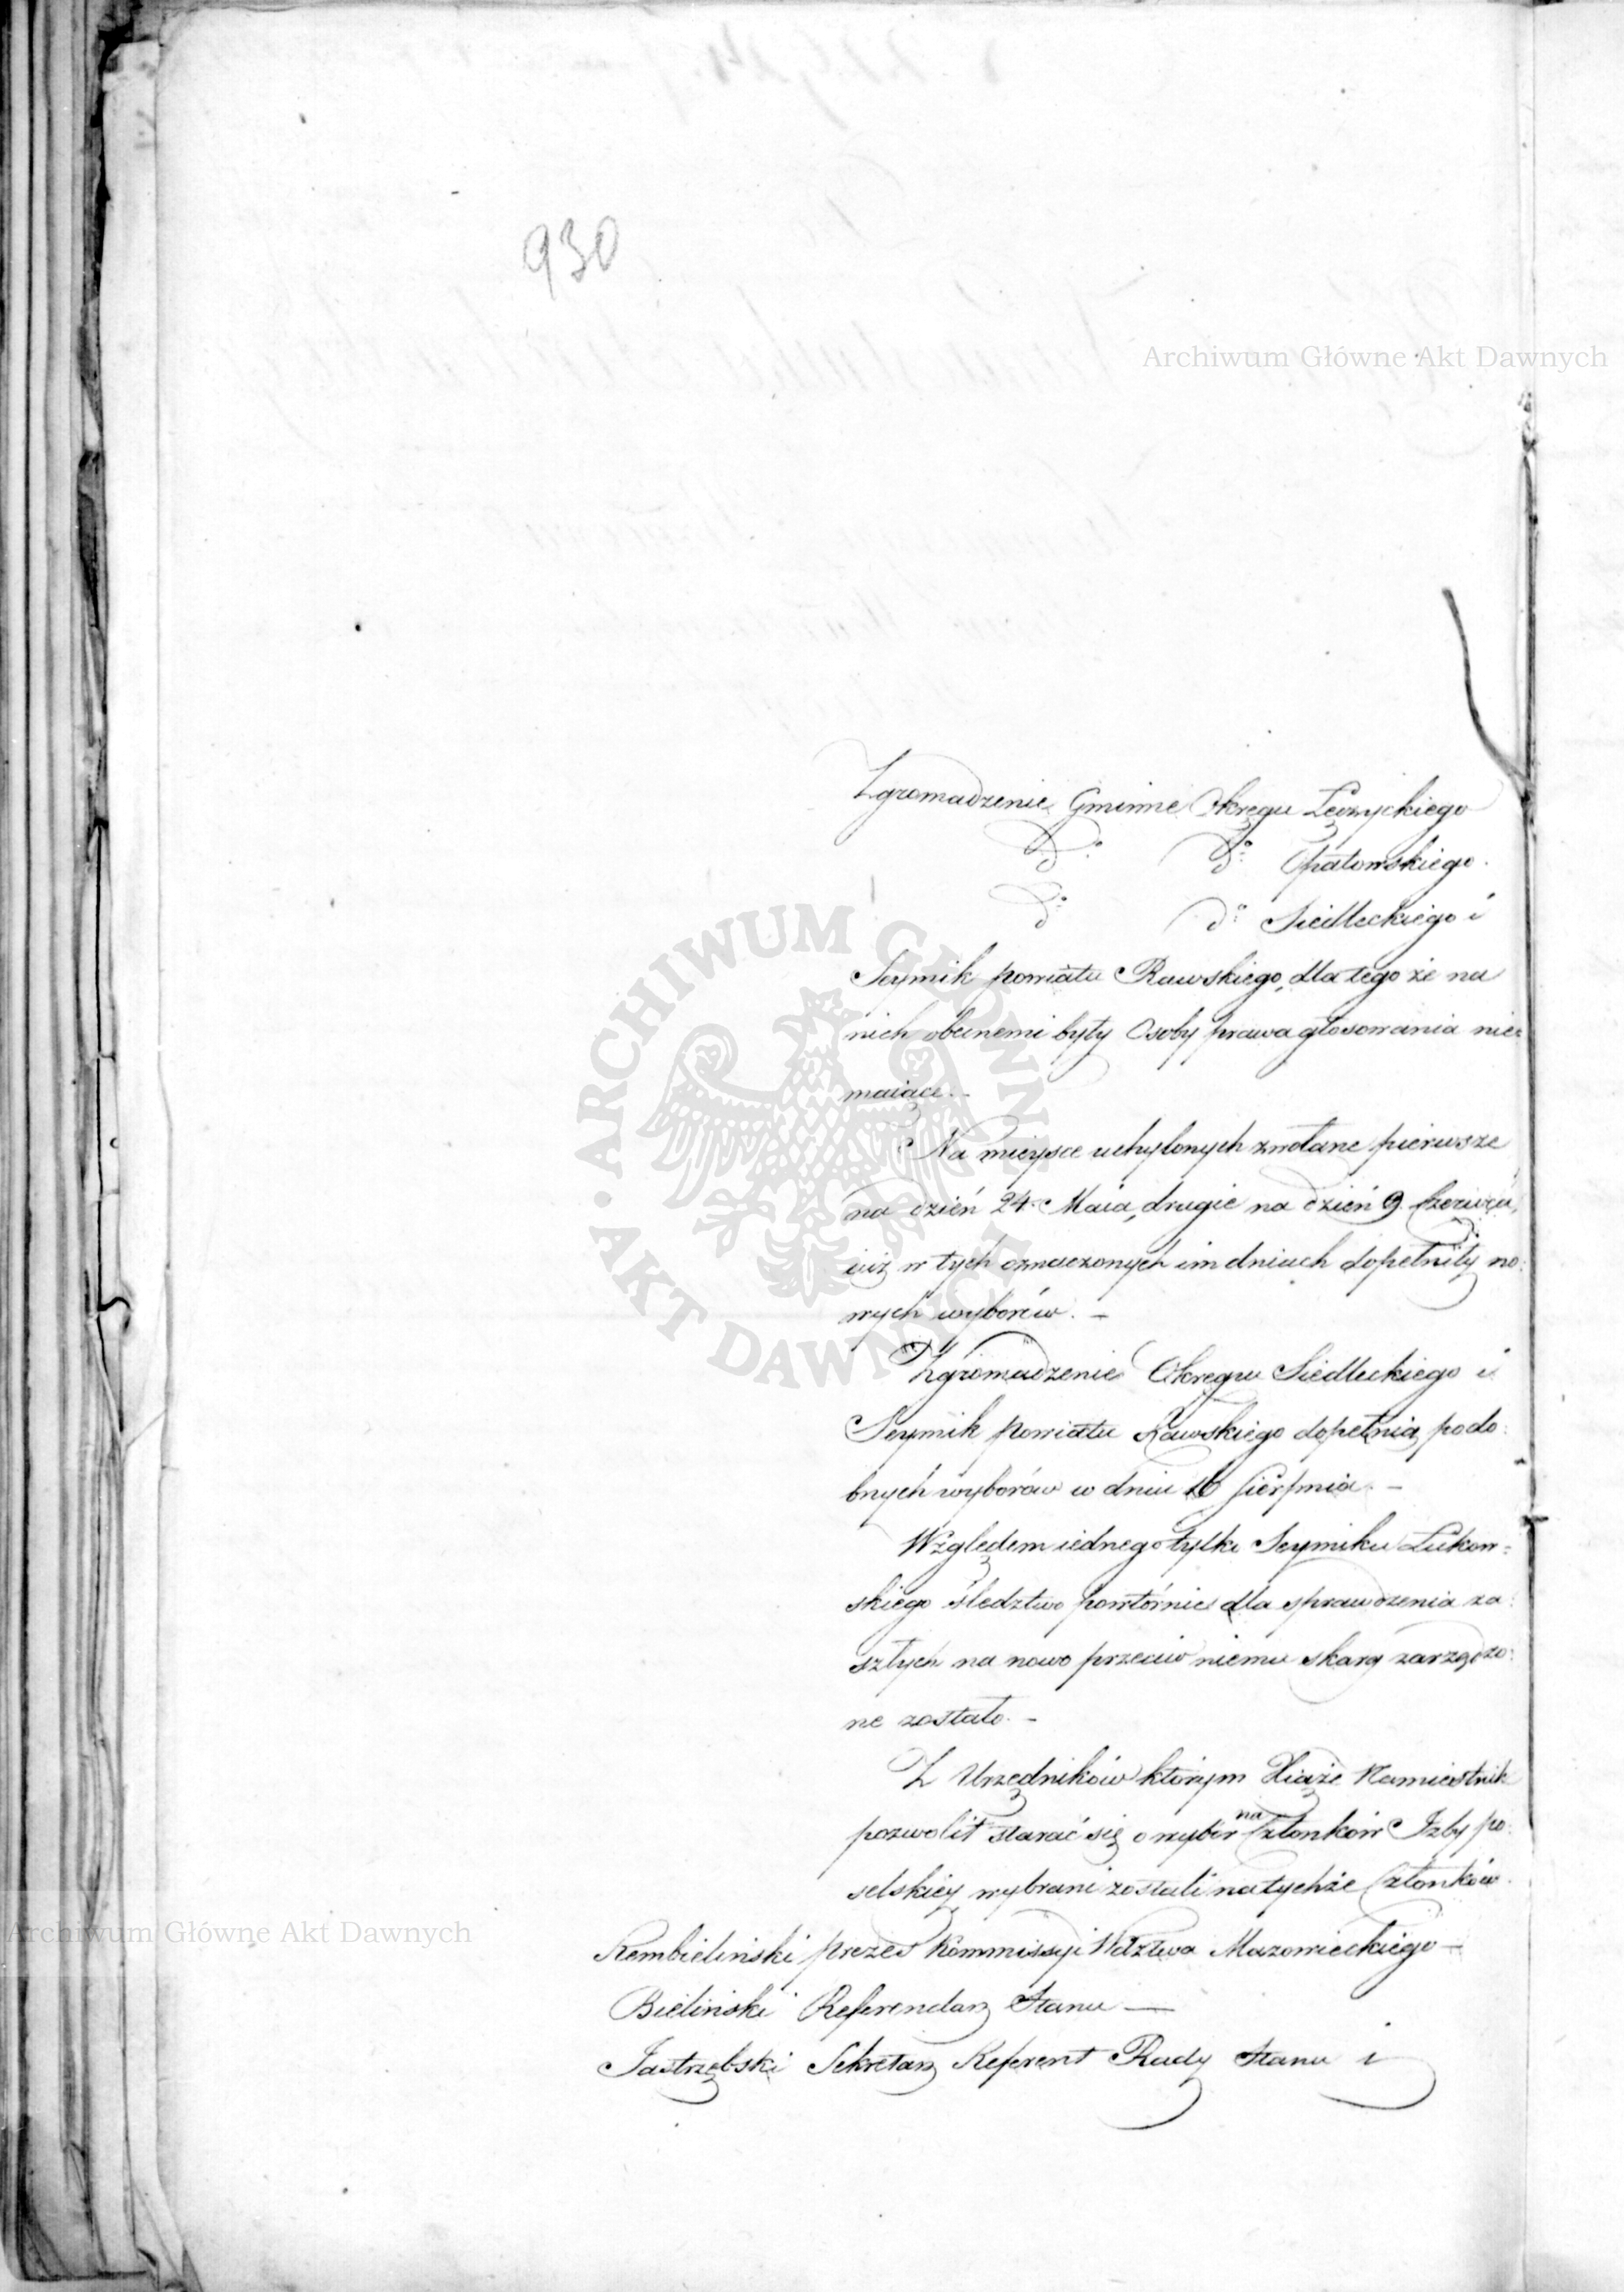 930
Archiwum Główne Akt Dawnych
Zgromadzenie Gminne Okręgu Łęczyckiego
do do Opatowskiego.
do do Siedleckiego i
Seymik powiatu Rawskiego, dla tego że na
nich obecnemi były Osoby prawa głosowania nie=
maiące. –
Na mieysce uchylonych zwołane pierwsze
na dzień 24. Maia, drugie na dzień 9. Czerwca,
iuż w tych oznaczonych im dniach dopełniły no:
wych wyborów. –
Zgromadzenie Okręgu Siedleckiego i
Seymik powiatu Rawskiego dopełnią podo:
bnych wyborów w dniu 16 Sierpnia. –
Względem iednego tylko Seymiku Łukow=
skiego śledztwo powtórnie dla sprawdzenia za:
szłych na nowo przeciw niemu skarg zarządzo:
ne zostało. –
Z Urzędników którym Xiąże Namiestnik
pozwolił starać się o wybór na Członków Izby po:
selskiéy wybrani zostali na tychże Członków.
Archiwum Główne Akt Dawnych
Rembieliński prezes Kommissyi Wdztwa Mazowieckiego –
Bieliński Referendarz Stanu —
Jastrzębski Sekretarz Referent Rady Stanu i
ARCHIWUM GŁÓWNE • AKT DAWNYCH •